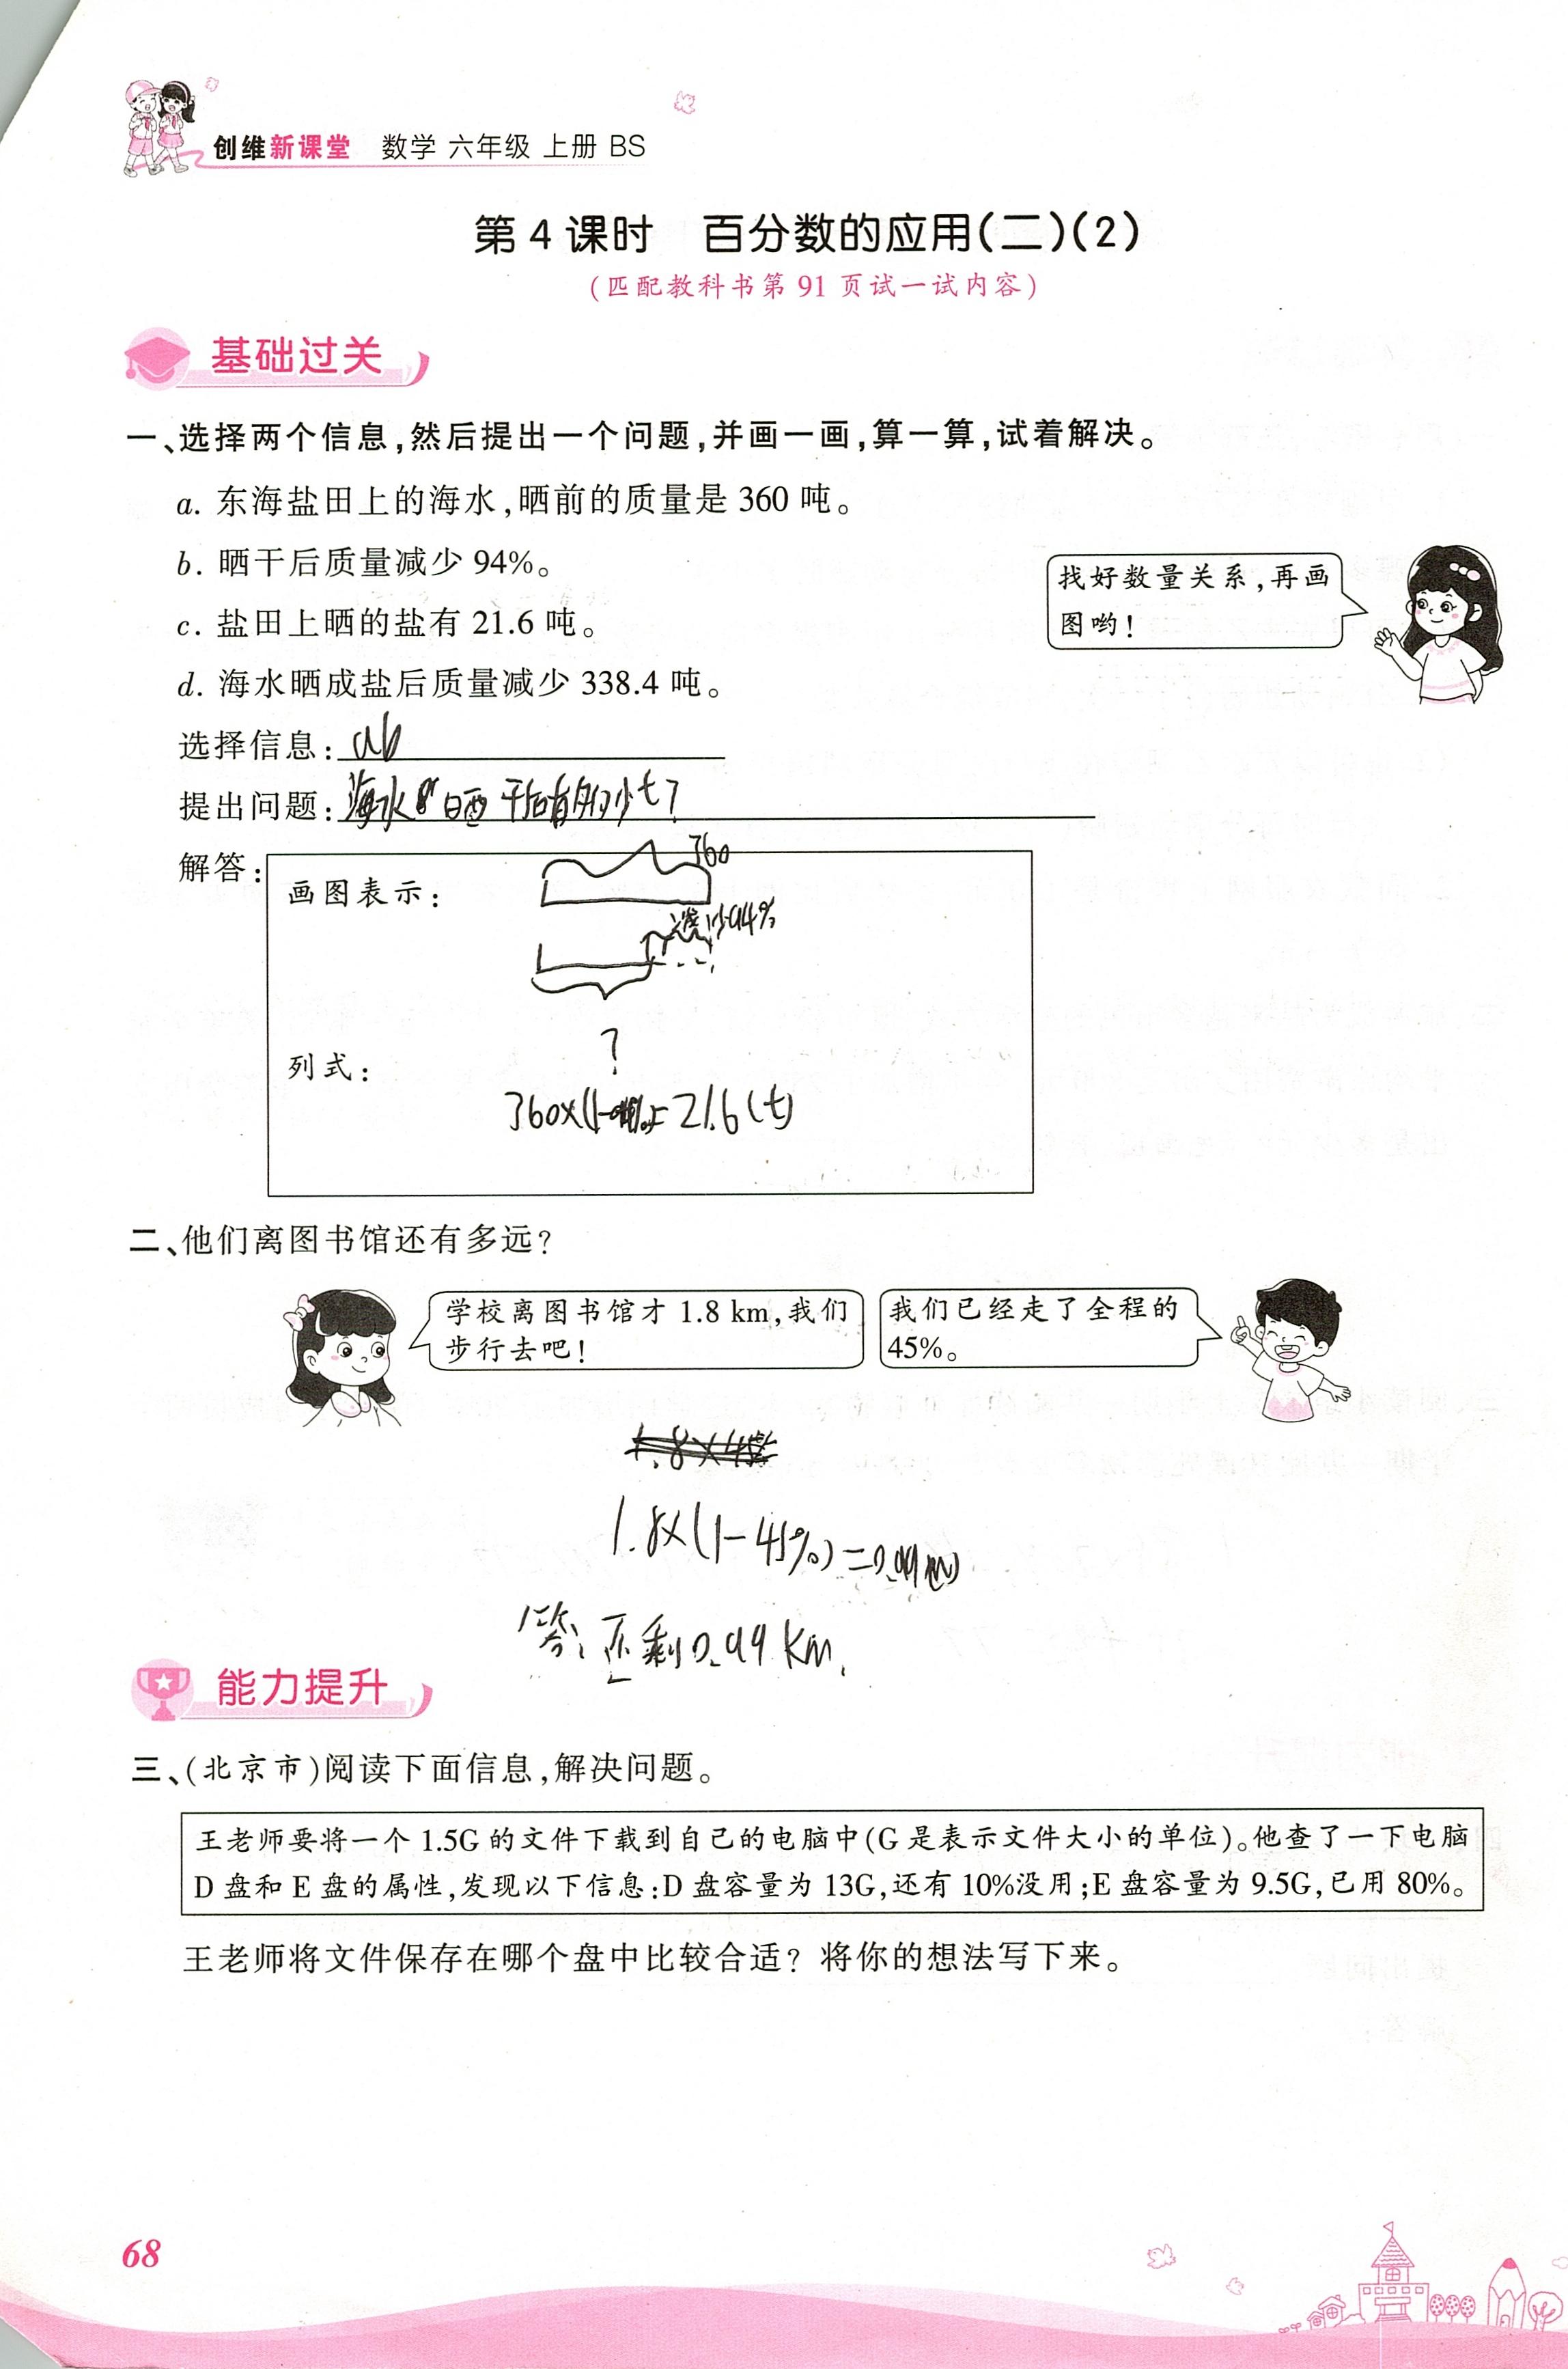 创维新课堂 数学 六年级 上册 BS
第4课时 百分数的应用(二)(2)
(匹配教科书第91页试一试内容)
基础过关
一、选择两个信息,然后提出一个问题,并画一画,算一算,试着解决。
a. 东海盐田上的海水,晒前的质量是360吨。
b. 晒干后质量减少94%。
c. 盐田上晒的盐有21.6吨。
d. 海水晒成盐后质量减少338.4吨。
找好数量关系,再画
图哟!
选择信息: ab
提出问题: 海水晒干后有多少t?
解答:
画图表示:
360
减少94%
?
列式:
360×(1-94%)=21.6(t)
二、他们离图书馆还有多远?
学校离图书馆才1.8 km,我们
步行去吧!
我们已经走了全程的
45%。
1.8×(1-45%)=0.99(km)
答:还剩0.99km.
能力提升
三、(北京市)阅读下面信息,解决问题。
王老师要将一个1.5G的文件下载到自己的电脑中(G是表示文件大小的单位)。他查了一下电脑
D盘和E盘的属性,发现以下信息:D盘容量为13G,还有10%没用;E盘容量为9.5G,已用80%。
王老师将文件保存在哪个盘中比较合适?将你的想法写下来。
68